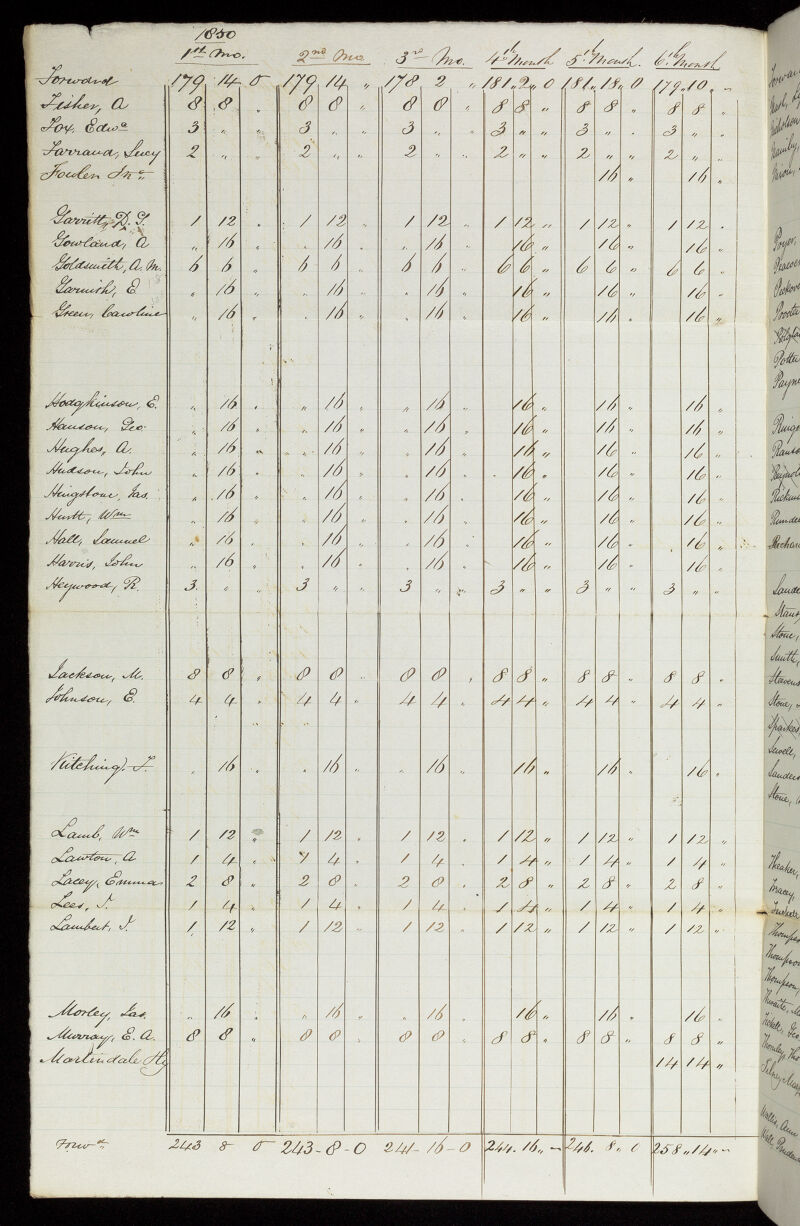 1850
1st Mo. 2nd Mo 3rd Mo. 4th Month 5th Month. 6th Month
Forward 179 14 0 179 14 " 178 2 " 181 " 2 " 0 181 " 18 " 0 179 " 10 " -
Fisher, A 8 8 " 8 8 " 8 8 " 8 8 " 8 8 " 8 8 "
Fox, Edwd 3 " " 3 " " 3 " " 3 " " 3 " " 3 " "
Farrand, Lucy 2 " " 2 " " 2 " " 2 " " 2 " " 2 " "
16 " 16 "
Garritt, D. G. 1 12 " 1 12 " 1 12 " 1 12 " 1 12 " 1 12 "
Gowland, A " 16 " " 16 " " 16 " 16 " 16 " 16 "
Goldsmith, A. M. 6 6 " 6 6 " 6 6 " 6 6 " 6 6 " 6 6 "
Garnish, E " 16 " " 16 " " 16 " 16 " 16 " 16 "
Green, Caroline " 16 " " 16 " " 16 " 16 " 16 " 16 "
Hodgkinson, E. " 16 " " 16 " " 16 " 16 " 16 " 16 "
Hanson, Geo. " 16 " " 16 " " 16 " 16 " 16 " 16 "
Hughes, A. " 16 " " 16 " " 16 " 16 " 16 " 16 "
Hudson, John " 16 " " 16 " " 16 " 16 " 16 " 16 "
Hingstone, Jas. " 16 " " 16 " " 16 " 16 " 16 " 16 "
Hurtt, Wm " 16 " " 16 " " 16 " 16 " 16 " 16 "
Hall, Samuel " 16 " " 16 " " 16 " 16 " 16 " 16 "
Harris, John " 16 " " 16 " " 16 " 16 " 16 " 16 "
Heywood, R. 3 " " 3 " " 3 " " 3 " " 3 " " 3 " "
Jackson, M. 8 8 " 8 8 " 8 8 " 8 8 " 8 8 " 8 8 "
Johnson, E. 4 4 " 4 4 " 4 4 " 4 4 " 4 4 " 4 4 "
Kitching, T. " 16 " " 16 " " 16 " 16 " 16 " 16 "
Lamb, Wm 1 12 " 1 12 " 1 12 " 1 12 " 1 12 " 1 12 "
Lawton, A 1 4 " 1 4 " 1 4 " 1 4 " 1 4 " 1 4 "
Lacey, Emma 2 8 " 2 8 " 2 8 " 2 8 " 2 8 " 2 8 "
Lees, J. 1 4 " 1 4 " 1 4 " 1 4 " 1 4 " 1 4 "
Lambert, J. 1 12 " 1 12 " 1 12 " 1 12 " 1 12 " 1 12 "
Morley, Jas. " 16 " " 16 " " 16 " 16 " 16 " 16 "
Murray, E. A. 8 8 " 8 8 " 8 8 " 8 8 " 8 8 " 8 8 "
Martindale Hy 14 14 "
Forwd 243 8 0 243 - 8 - 0 241 - 16 - 0 244 . 16 " - 246 . 8 " 0 258 " 14 " -